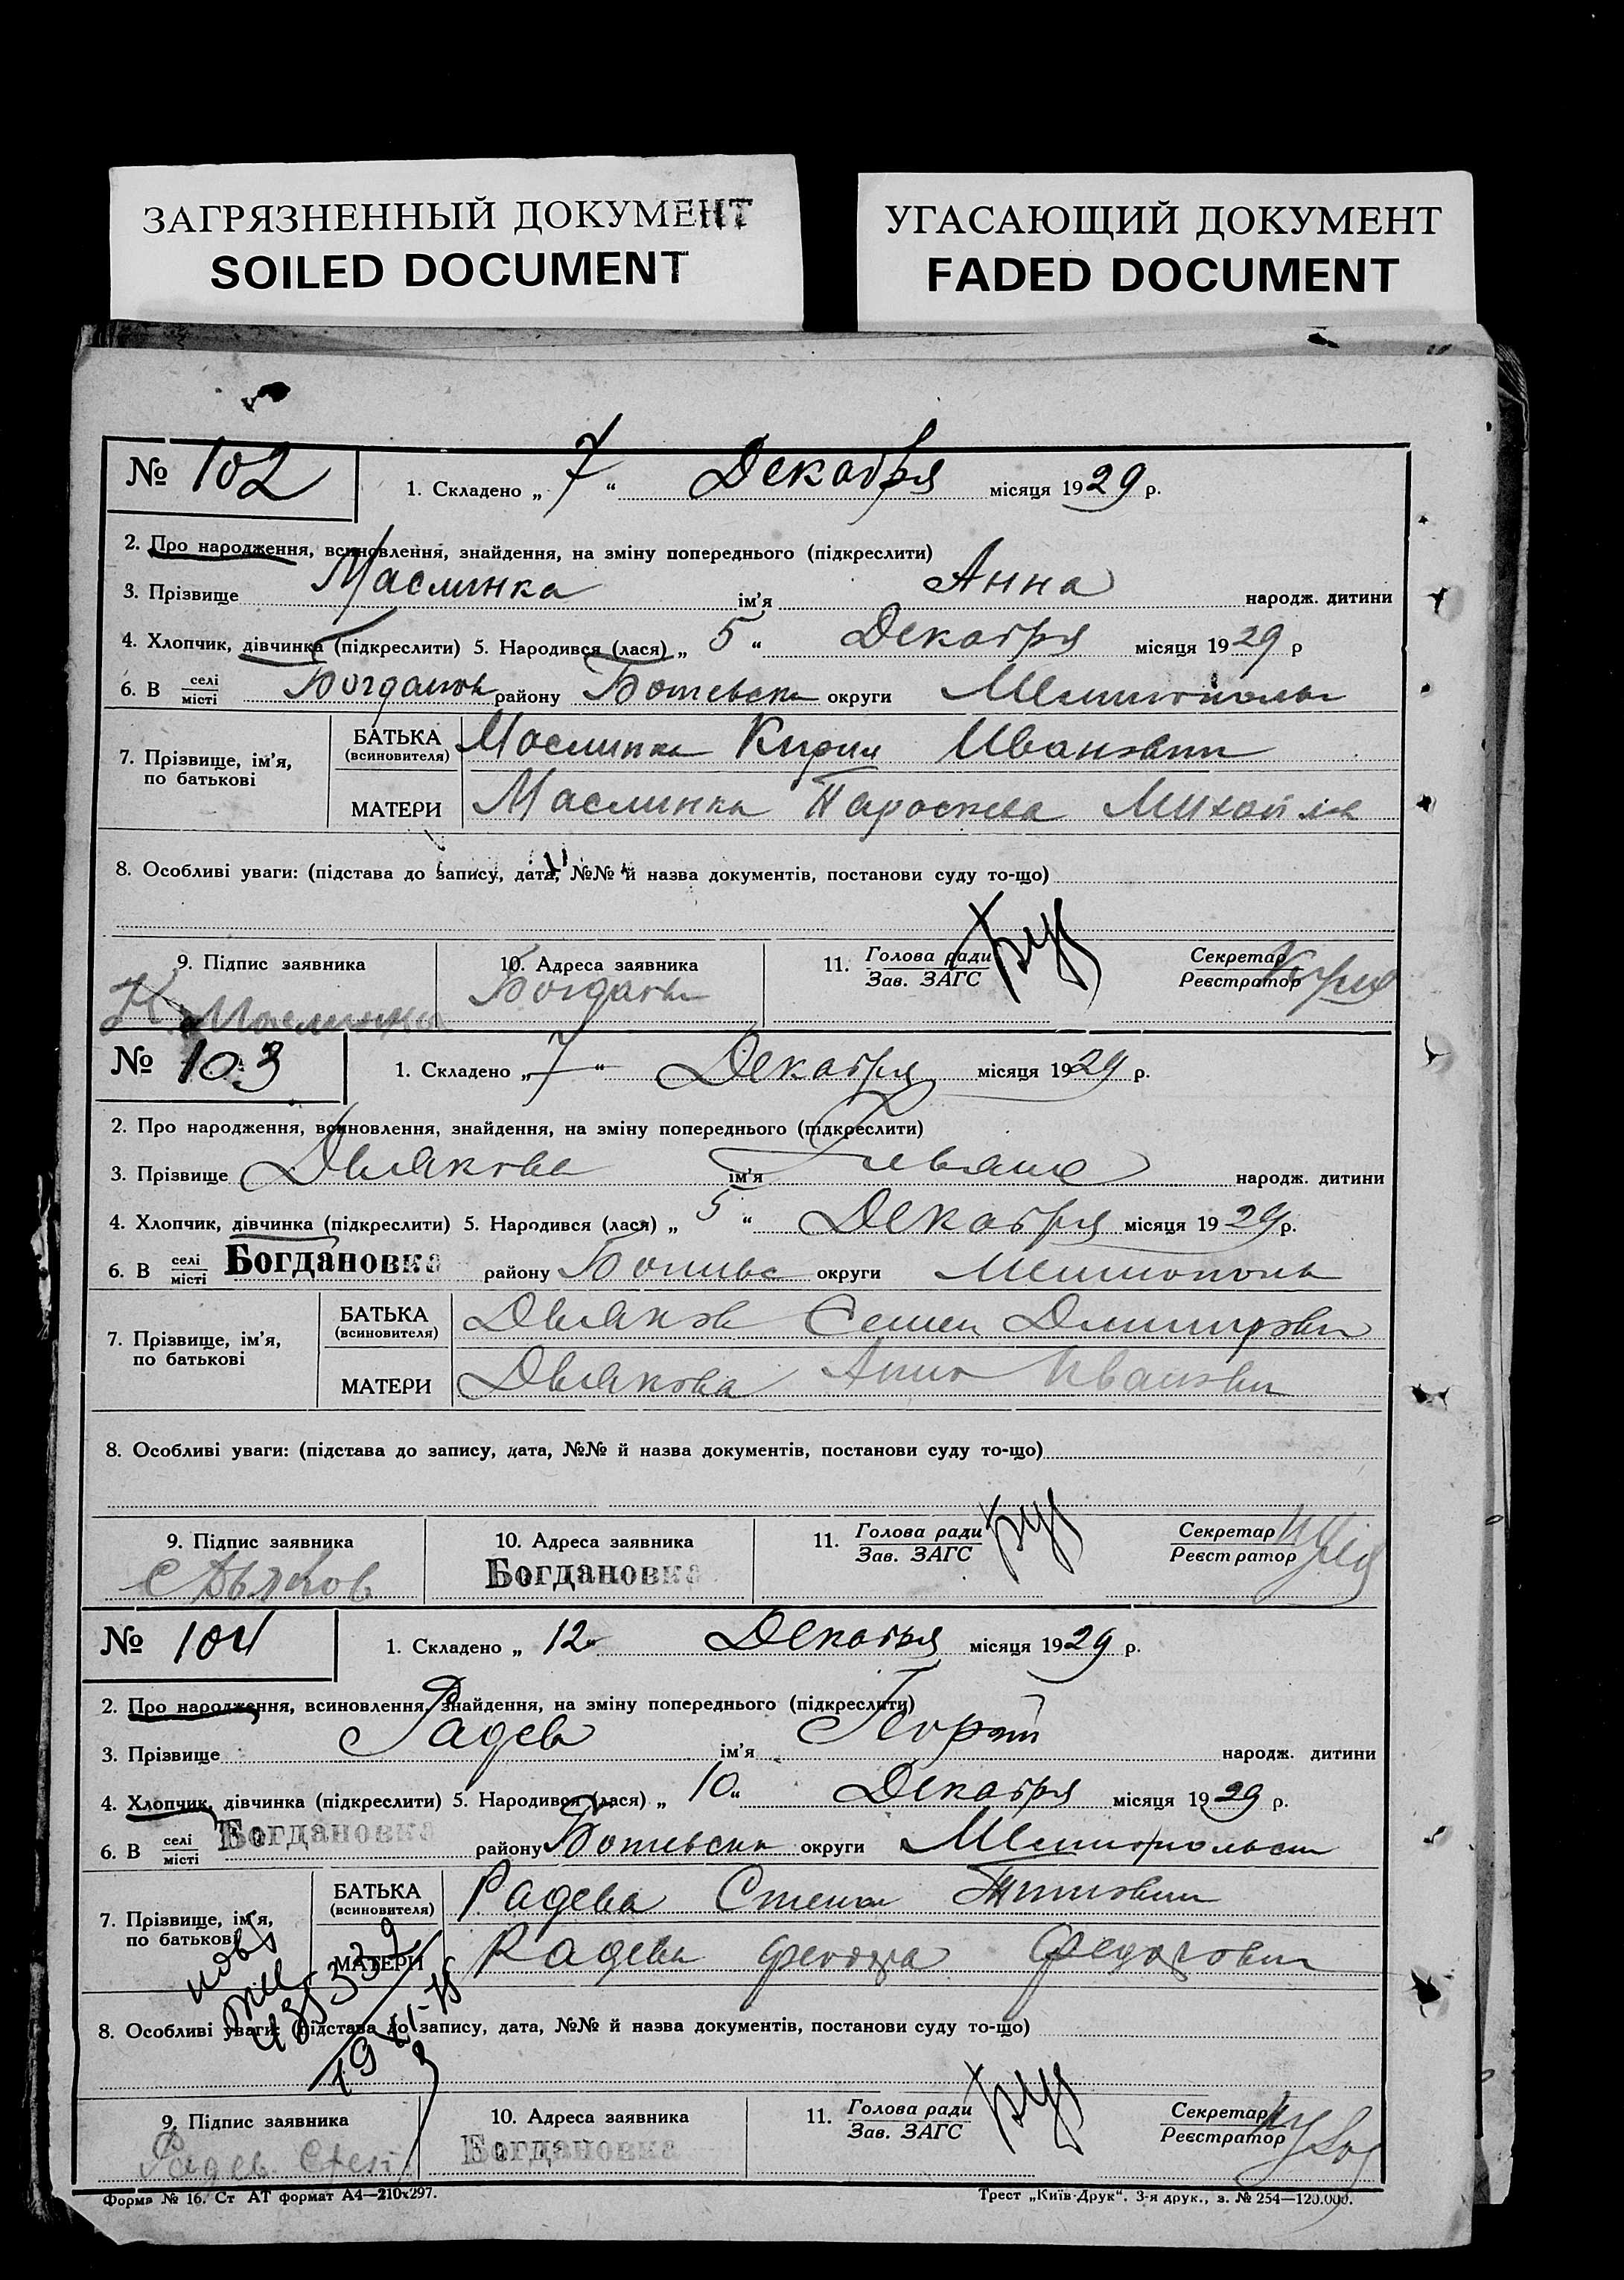 ЗАГРЯЗНЕННЫЙ ДОКУМЕНТ
SOILED DOCUMENT
УГАСАЮЩИЙ ДОКУМЕНТ
FADED DOCUMENT
№ 102
1. Складено „ 7 “ Декабря місяця 1929 р.
2. Про народження, всиновлення, знайдення, на зміну попереднього (підкреслити)
3. Прізвище Маслинка ім’я Анна народж. дитини
4. Хлопчик, дівчинка (підкреслити) 5. Народився (лася) „ 5 “ Декабря місяця 1929 р
6. В селі місті Богданов району Ботевск округи
7. Прізвище, ім’я, по батькові
БАТЬКА (всиновителя) Маслинка Кирил Иванович
МАТЕРИ Маслинка Параскева Михайлов
8. Особливі уваги: (підстава до запису, дата, №№ й назва документів, постанови суду то-що)
9. Підпис заявника К. Маслинка
10. Адреса заявника Богданов
11. Голова ради Зав. ЗАГС
Секретар Реєстратор
№ 103
1. Складено „ 7 “ Декабря місяця 1929 р.
2. Про народження, всиновлення, знайдення, на зміну попереднього (підкреслити)
3. Прізвище Двлякова ім’я народж. дитини
4. Хлопчик, дівчинка (підкреслити) 5. Народився (лася) „ 5 “ Декабря місяця 1929 р.
6. В селі місті Богдановка району округи
7. Прізвище, ім’я, по батькові
БАТЬКА (всиновителя) Семен Дмитрович
МАТЕРИ Анна Иванович
8. Особливі уваги: (підстава до запису, дата, №№ й назва документів, постанови суду то-що)
9. Підпис заявника
10. Адреса заявника Богдановка
11. Голова ради Зав. ЗАГС
Секретар Реєстратор
№ 104
1. Складено „ 12 “ Декабря місяця 1929 р.
2. Про народження, всиновлення, знайдення, на зміну попереднього (підкреслити)
3. Прізвище Радев ім’я Георгий народж. дитини
4. Хлопчик, дівчинка (підкреслити) 5. Народився (лася) „ 10 “ Декабря місяця 1929 р.
6. В селі місті Богдановка району Ботевск округи
7. Прізвище, ім’я, по батькові
БАТЬКА (всиновителя) Радева Степан
МАТЕРИ Радева
8. Особливі уваги: (підстава до запису, дата, №№ й назва документів, постанови суду то-що)
9. Підпис заявника Радев
10. Адреса заявника Богдановка
11. Голова ради Зав. ЗАГС
Секретар Реєстратор
Форма № 16. Ст АТ формат А4—210х297.
Трест „Київ-Друк“. 3-я друк., з. № 254—120.000.